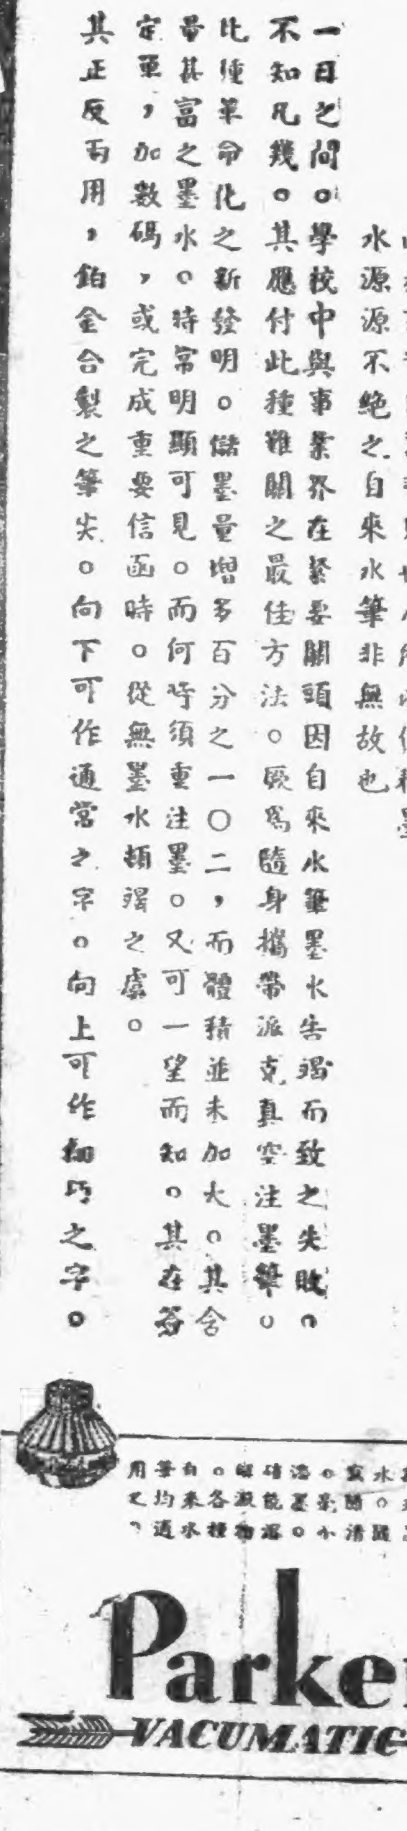 水源源不絶之自來水筆非無故也
一日之間。學校中與事業界在緊要關頭因自來水筆墨水告竭而致之失敗。
不知凡幾。其應付此種難關之最佳方法。厥爲隨身攜帶派克真空注墨筆。
比種革命化之新發明。儲墨量增多百分之一〇二，而體積並未加大。其含
量甚富之墨水。時常明顯可見。而何時須重注墨。又可一望而知。其在簽
定單，加數碼，或完成重要信函時。從無墨水頓竭之虞。
其正反兩用，鉑金合製之筆尖。向下可作通常之字。向上可作細巧之字。
Parke
VACUMATIC